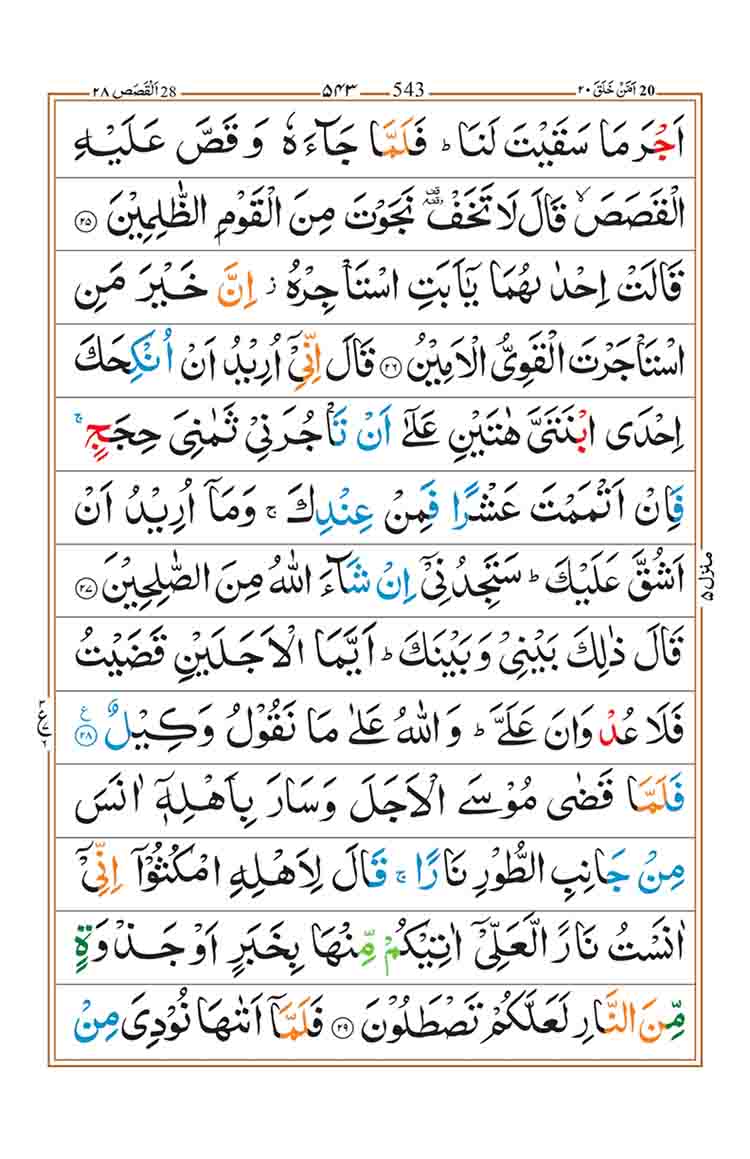 اَمَّنْ خَلَقَ ٢٠ 20 543 ۵۴۳ 28 اَلْقَصَص ٢٨
اَجْرَ مَا سَقَيْتَ لَنَا ؕ فَلَمَّا جَآءَهٗ وَ قَصَّ عَلَيْهِ
الْقَصَصَ ۙ قَالَ لَا تَخَفْ ۥ۫ نَجَوْتَ مِنَ الْقَوْمِ الظّٰلِمِيْنَ ﴿۲۵﴾
قَالَتْ اِحْدٰىهُمَا يٰۤاَبَتِ اسْتَاْجِرْهُ ؗ اِنَّ خَيْرَ مَنِ
اسْتَاْجَرْتَ الْقَوِيُّ الْاَمِيْنُ ﴿۲۶﴾ قَالَ اِنِّيْۤ اُرِيْدُ اَنْ اُنْكِحَكَ
اِحْدَى ابْنَتَيَّ هٰتَيْنِ عَلٰۤى اَنْ تَاْجُرَنِيْ ثَمٰنِيَ حِجَجٍ ۚ
فَاِنْ اَتْمَمْتَ عَشْرًا فَمِنْ عِنْدِكَ ۚ وَمَاۤ اُرِيْدُ اَنْ
اَشُقَّ عَلَيْكَ ؕ سَتَجِدُنِيْۤ اِنْ شَآءَ اللّٰهُ مِنَ الصّٰلِحِيْنَ ﴿۲۷﴾
قَالَ ذٰلِكَ بَيْنِيْ وَ بَيْنَكَ ؕ اَيَّمَا الْاَجَلَيْنِ قَضَيْتُ
فَلَا عُدْوَانَ عَلَيَّ ؕ وَ اللّٰهُ عَلٰى مَا نَقُوْلُ وَكِيْلٌ ﴿۲۸﴾ ع
فَلَمَّا قَضٰى مُوْسَى الْاَجَلَ وَسَارَ بِاَهْلِهٖۤ اٰنَسَ
مِنْ جَانِبِ الطُّوْرِ نَارًا ۚ قَالَ لِاَهْلِهِ امْكُثُوْۤا اِنِّيْۤ
اٰنَسْتُ نَارًا لَّعَلِّيْۤ اٰتِيْكُمْ مِّنْهَا بِخَبَرٍ اَوْ جَذْوَةٍ
مِّنَ النَّارِ لَعَلَّكُمْ تَصْطَلُوْنَ ﴿۲۹﴾ فَلَمَّاۤ اَتٰىهَا نُوْدِيَ مِنْ
منزل ۵